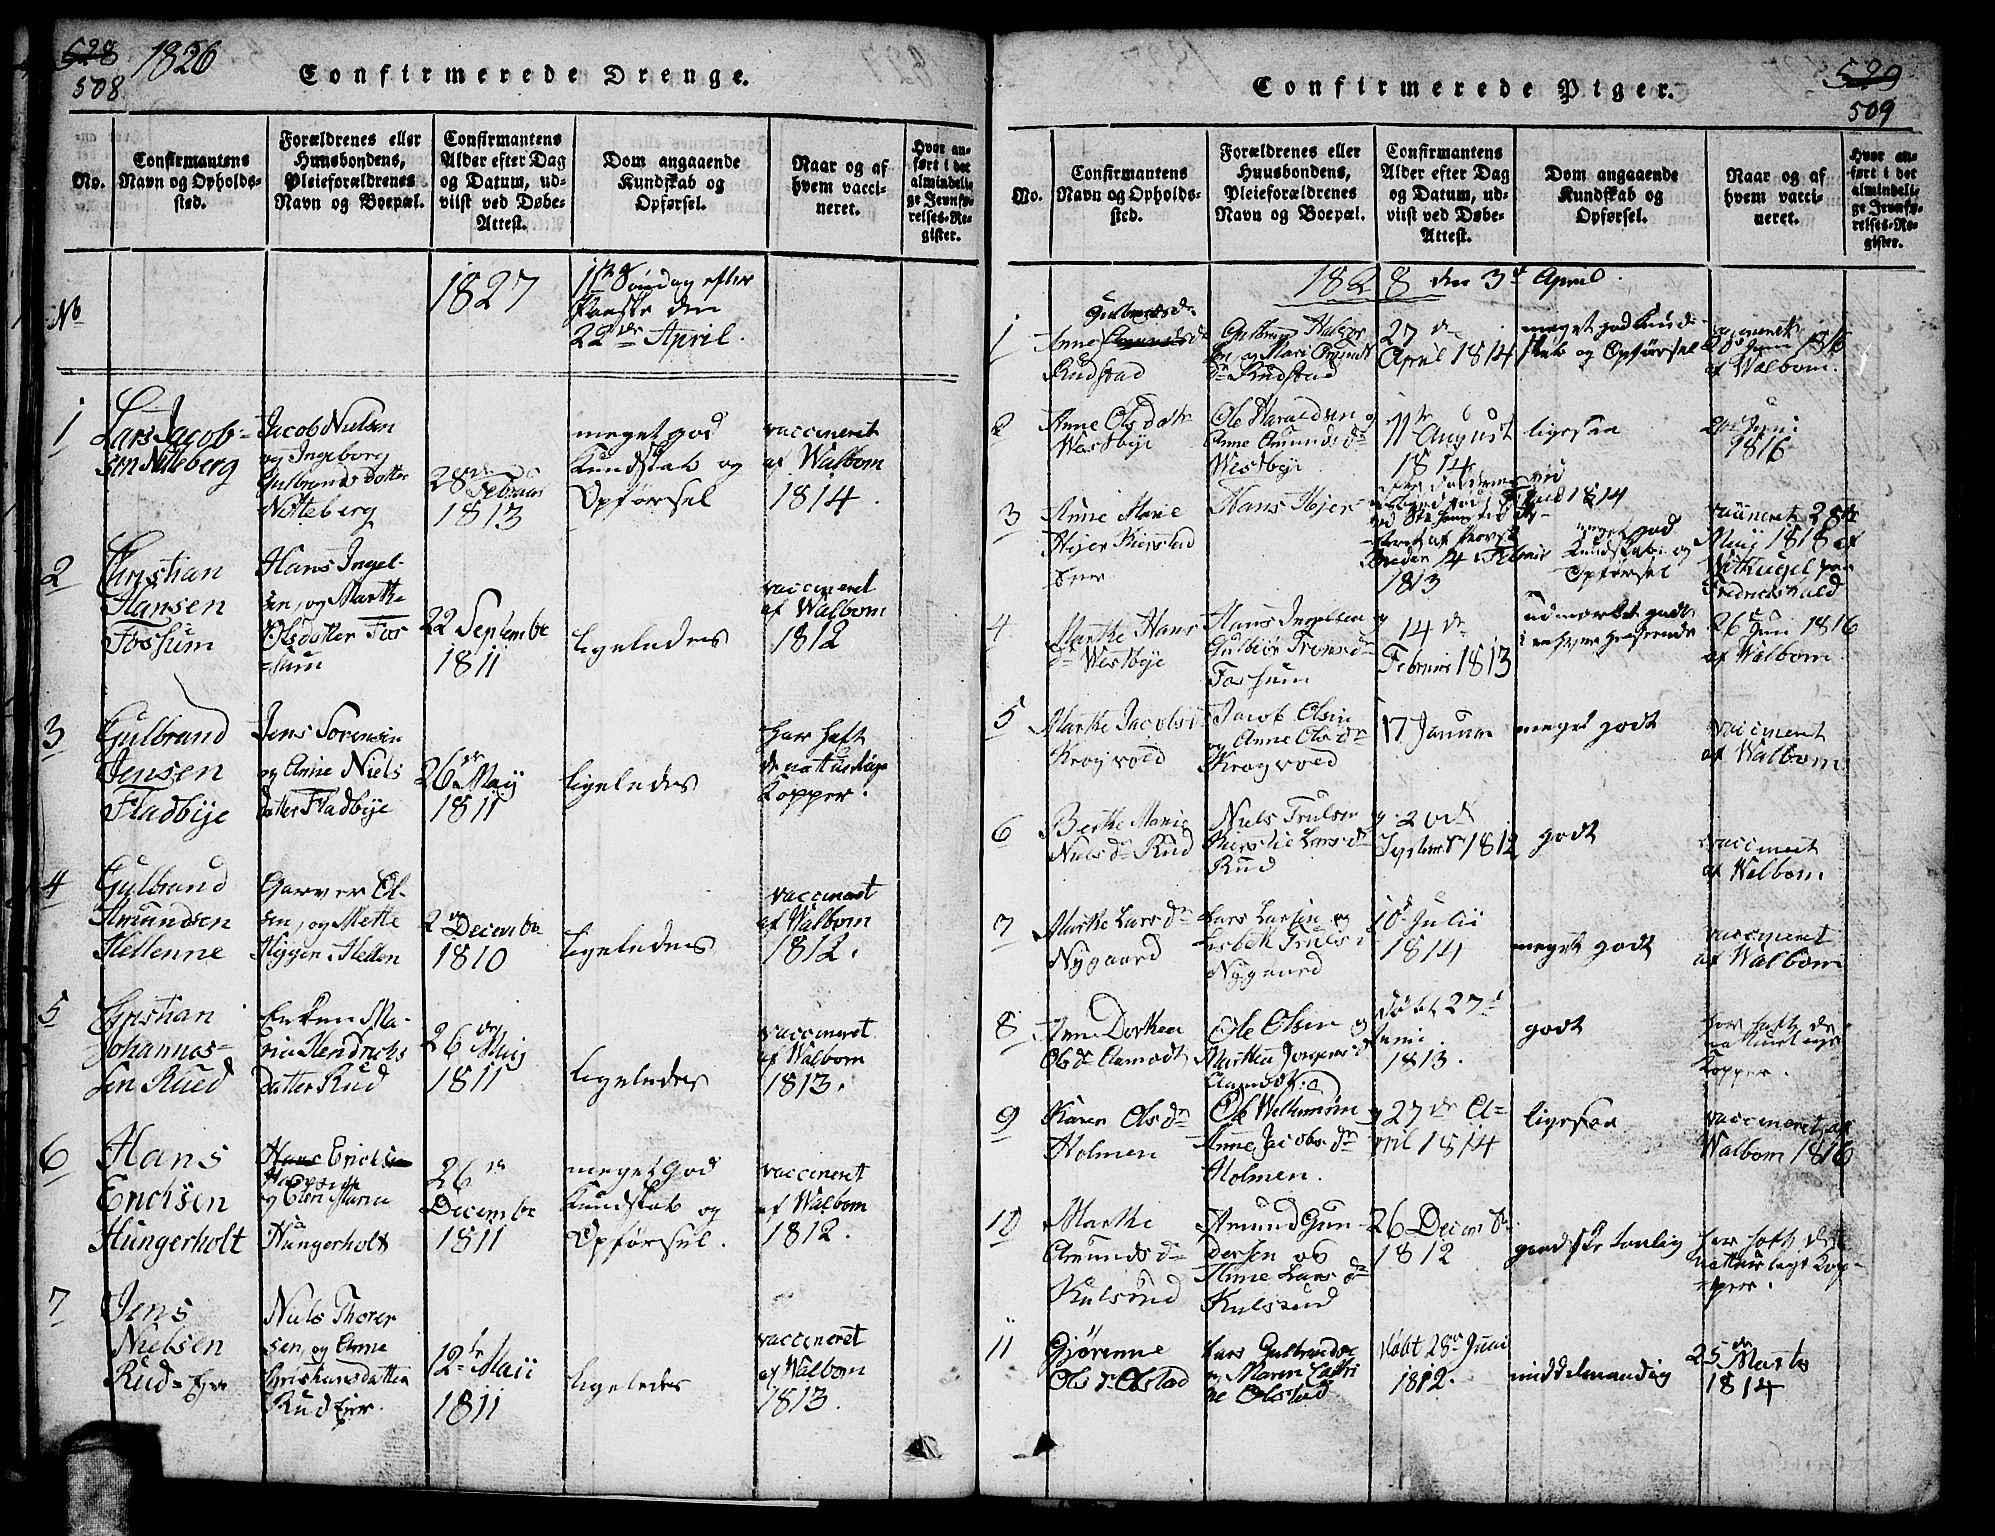 528 1826
508
Confirmerede Drenge.
No.
Confirmantens
Navn og Opholds-
sted.
Forældrenes eller
Huusbondens,
Pleieforældrenes
Navn og Boepæl.
Confirmantens
Alder efter Dag
og Datum, ud-
viist ved Døbe-
Attest.
Dom angaaende
Kundskab og
Opførsel.
Naar og af
hvem vacci-
neret.
Hvor an-
ført i det
almindeli-
ge Jevnfø-
relses-Re-
gister.
No
1827
1ste Søndag efter
Paaske den
22de April.
1
Lars Jacob-
sen Nitteberg
Jacob Nielsen
og Ingeborg
Gulbrands datter
Nitteberg
28de Februar
1813
meget god
Kundskab og
Opførsel
vaccineret
af Walbom
1814.
2
Christian
Hansen
Fossum
Hans Ingel-
sen, og Marthe
Olsdatter Fos
=sum
22 Septembr
1811
ligeledes
vaccineret
af Walbom
1812
3
Gulbrand
Jensen
Fladbye
Jens Sorensen
og Anne Niels
datter Fladbye
26de Maij
1811
ligeledes
har haft
de naturlige
Kopper.
4
Gulbrand
Amundsen
Hellenne
Garver Ol-
sen, og Mette
Higgen Hellen
2de Decembr
1810
ligeledes
vaccineret
af Walbom
1812.
5
Christian
Johannes-
sen Rued
Enken Ma-
ria Hendrichs
datter Rud
26de Maij
1811
ligeledes
vaccineret
af Walbom
1813.
6
Hans
Erichsen
Hungerholt
Hans Erichsen
og Eleri Maria
Hungerholt
26de
Decembr
1811
meget God
Kundskab og
Opførsel.
vaccineret
af Walbom
1812.
7
Jens
Nielsen
Rud=Eier
Niels Thorer
sen, og Anne
Christiansdatter
Rud Eier.
12te Maii
1811
ligeledes
vaccineret
af Walbom
1813.
529
509
Confirmerede Piger.
No.
Confirmantens
Navn og Opholds-
sted.
Forældrenes eller
Huusbondens,
Pleieforældrenes
Navn og Boepæl.
Confirmantens
Alder efter Dag
og Datum, ud-
viist ved Døbe-
Attest.
Dom angaaende
Kundskab og
Opførsel.
Naar og af
hvem vacci-
neret.
Hvor an-
ført i det
almindeli-
ge Jevnfø-
relses-Re-
gister.
1828 den 3d April.
1
Gulbrandsdr
Anne Amundsdr
Rudstad
Gulbrand Halvor
sen og Mari Amunds
dr Rudstad
27de
April 1814
meget god Kund-
skab og Opførsel
vaccineret
Juni 1816
af Walbom.
2
Anne Ols datr
Westbye
Ole Haraldsen og
Anne Amunds dr
Westbye
11te August
1814
ligesaa
Juni
1816
3
Anne Marie
Hejer Kierstad
Hans Hejer
14 Februar
1813
1814
meget god
Kundskab og
Opførsel
vaccineret 28de
Maij 1818 af
paa
Fredrikshald
4
Marthe Hans
dr Westbye
Hans Ingelsen og
Gulbiør Trons dr
Fossum
14de
Februar 1813
udmærket godt
i enhver henseende
26 Juni 1816
af Walbom.
5
Marthe Jacobs
Krogvold
Jacob Olsen
og Anne Ols dr
Krogvold
17 Januar
meget godt
vaccineret
af Walbom
6
Berthe Marie
Niels dr Rud
Niels Trulsen og
Kirstie Lars dr
Rud
20de
Septembr 1812
godt
vaccineret
af Walbom.
7
Marthe Lars dr
Nygaard
Lars Larsen og
Lisbeth Truls
Nygaard
10de Julii
1814
meget godt
vaccineret
af Walbom
8
Anne Dorthea
Ols dr Aamodt
Ole Olsen og
Marthea Jorgens d
Aamodt.
Døbt 27d
Juni.
1813.
godt
har haft de
naturlige
Kopper.
9
Karen Ols dr
Holmen
Ole Wilhumsøn og
Anne Jacobs dr
Holmen.
27de A=
pril 1814
ligesaa
vaccineret af
Walbom 1816
10
Marthe
Amunds dr
Kulsrud
Amund Gun-
dersen og
Anne Lars dr
Kulsrud
26 Decembr
1812
har haft de
naturlige Kop-
=per.
11
Gjørenne
Ols dr Olstad
Lars Gulbrandsen
og Maren Cathri
ne Olstad
Døbt 28de Juni
1812.
middelmaadig
25de Marts
1814